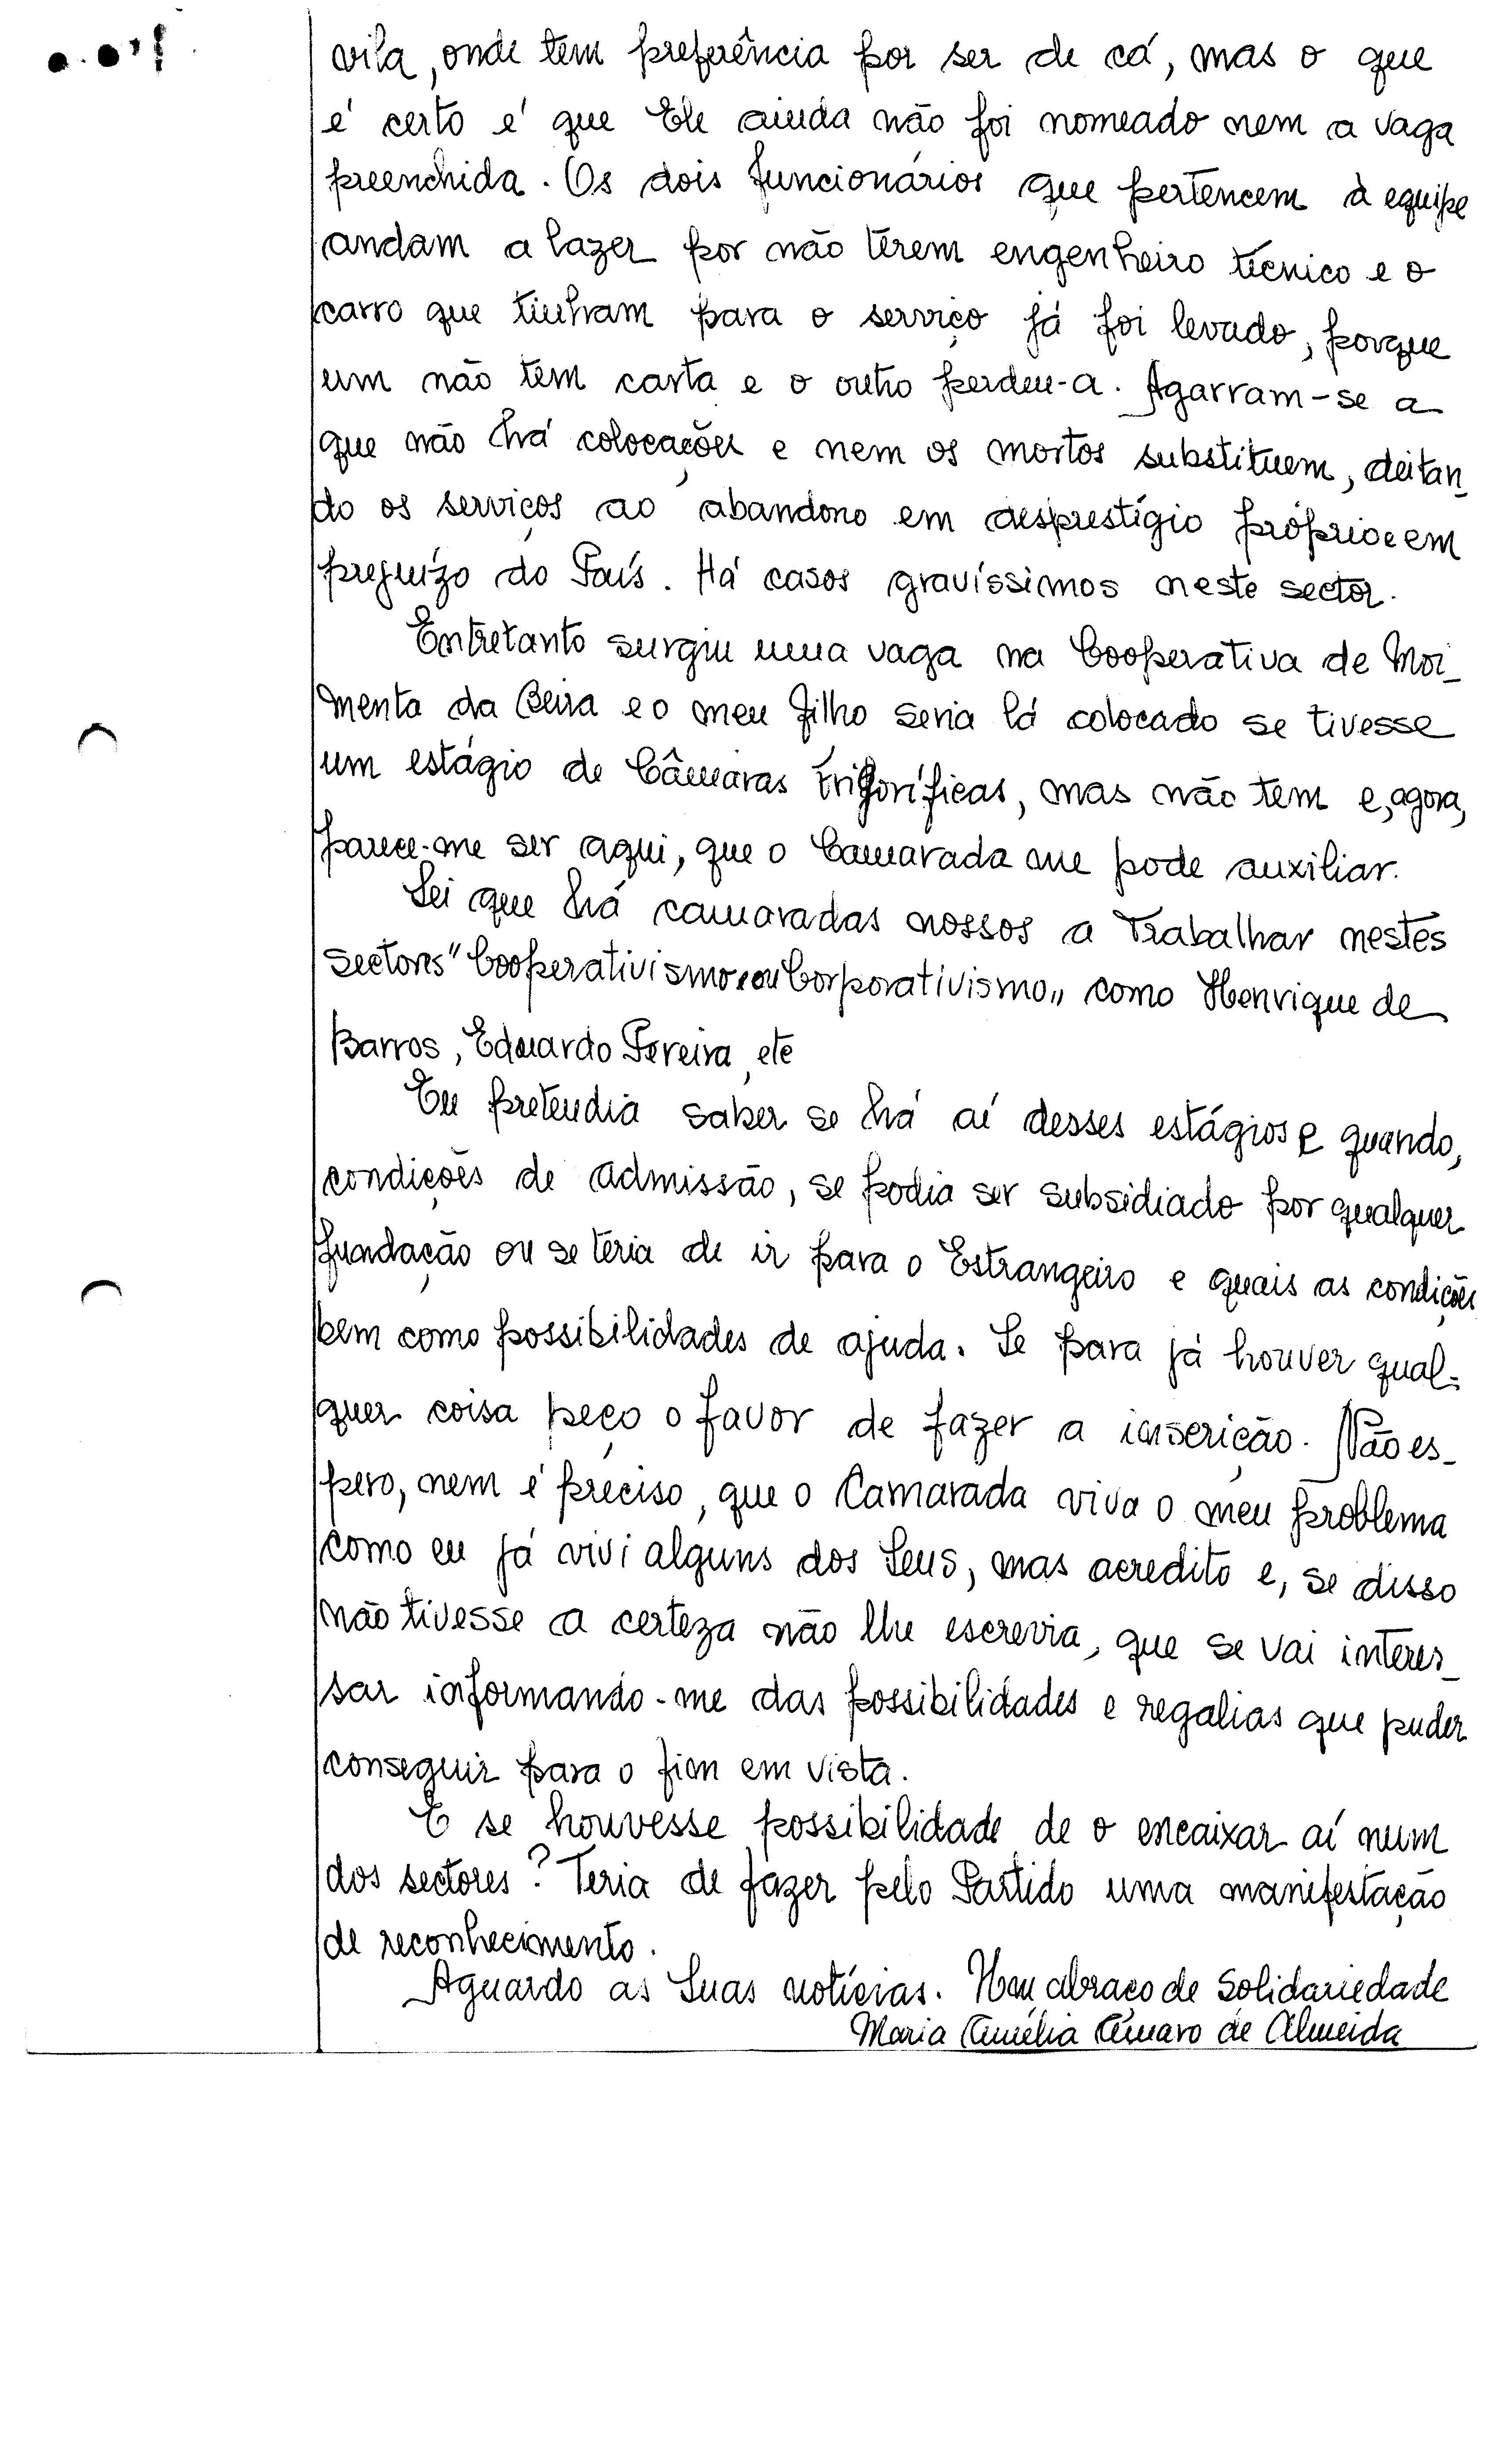 vila, onde tem preferência por ser de cá, mas o que
é certo é que Ele ainda não foi nomeado nem a vaga
preenchida. Os dois funcionários que pertencem à equipe
andam a lazer por não terem engenheiro técnico e o
carro que tinham para o serviço já foi levado, porque
um não tem carta e o outro perdeu-a. Agarram-se a
que não há colocações e nem os mortos substituem, deitan_
do os serviços ao abandono em desprestígio próprio e em
prejuízo do País. Há casos gravíssimos neste sector.
Entretanto surgiu uma vaga na Cooperativa de Moi_
menta da Beira e o meu filho seria lá colocado se tivesse
um estágio de Câmaras Frigoríficas, mas não tem e, agora,
parece-me ser aqui, que o Camarada me pode auxiliar.
Sei que há camaradas nossos a Trabalhar nestes
sectores "Cooperativismo e ou Corporativismo" como Henrique de
Barros, Eduardo Pereira, etc
Eu pretendia saber se há aí desses estágios e quando,
condições de admissão, se podia ser subsidiado por qualquer
fundação ou se teria de ir para o Estrangeiro e quais as condições
bem como possibilidades de ajuda. Se para já houver qual-
quer coisa peço o favor de fazer a inserição. Não es_
pero, nem é preciso, que o Camarada viva o meu problema
como eu já vivi alguns dos Seus, mas acredito e, se disso
não tivesse a certeza não lhe escrevia, que se vai interes_
sar informando-me das possibilidades e regalias que puder
conseguir para o fim em vista.
E se houvesse possibilidade de o encaixar aí num
dos sectores? Teria de fazer pelo Partido uma manifestação
de reconhecimento.
Aguardo as Suas notícias. Um abraço de Solidariedade
Maria Amélia Amaro de Almeida